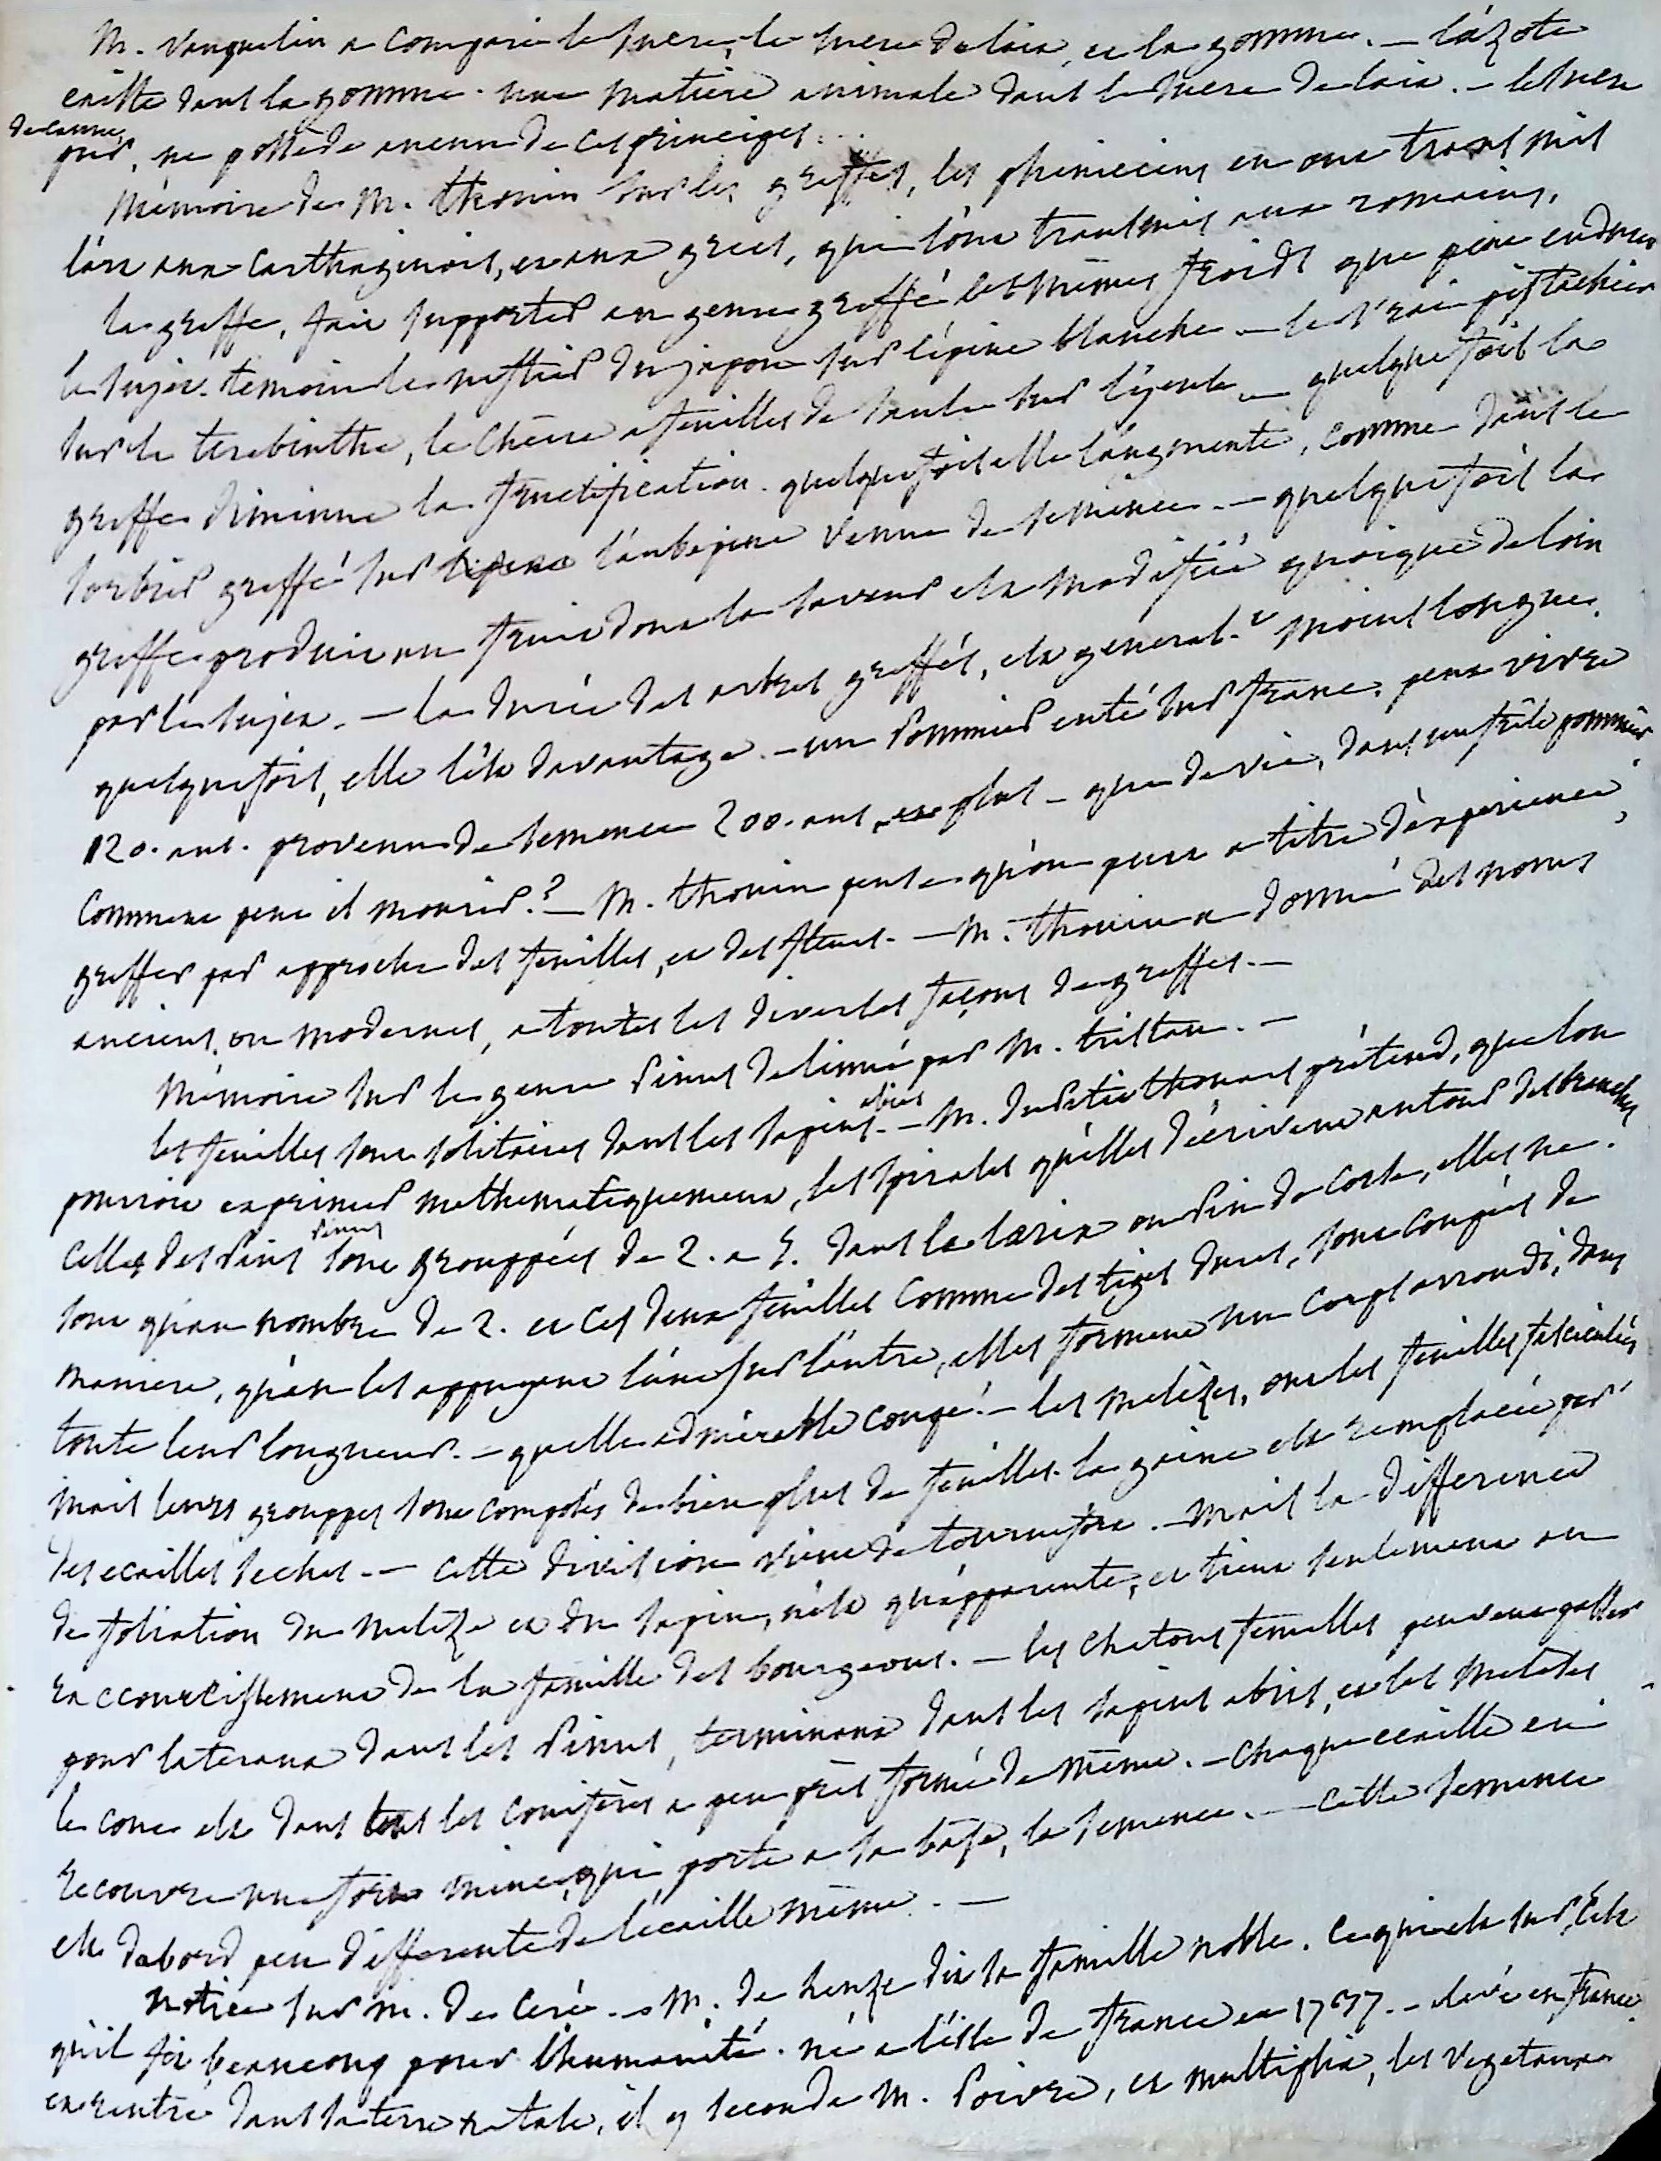 M. Vauquelin a comparé le sucre, le sucre de lait, et la gomme. – l'azote
existe dans la gomme. une matière animale dans le sucre de lait. – le sucre
de canne
pur, ne possède aucun de ces principes.
Mémoire de M. thouin sur les greffes, les phéniciens en ont transmis
l'art aux Carthaginois, et aux grecs, qui l'ont transmis aux romains.
la greffe, fait supporter au genre greffé les mêmes froids que peut endurer
le sujet. temoin le neflier du japon sur l'épine blanche – le vrai pistachier
sur le terebinthe, le Chêne a feuilles de saule sur l'yeuse – quelquefois la
greffe diminue la fructification. quelquefois elle l'augmente, comme dans le
sorbier greffé sur l'aubepine venue de semence. – quelquefois la
greffe produit un fruit dont la saveur est modifiée quoique de loin
par le sujet. – la durée des arbres greffés, est general.t moins longue.
quelquefois, elle l'est davantage. – un Pommier enté sur franc, peut vivre
120. ans. provenu de semence 200. ans et plus – que de vie, dans un frêle pommier
Comment peut il mourir.? – M. thouin pense qu'on peut a titre d'experience,
greffer par approche des feuilles, et des fleurs. – M. thouin a donné des noms
anciens, ou modernes, a toutes les diverses façons de greffes. –
Mémoire sur le genre Pinus de linné par M. tristan. –
les feuilles sont solitaires dans les sapins abies – M. du Petit thouars prétend, que l'on
pourroit exprimer mathematiquement, les spirales qu'elles décrivent autour des branches
Celles des Pins pinus sont grouppées de 2. a 5. dans le larix ou Pin de Corse, elles ne
sont qu'au nombre de 2. et ces deux feuilles comme des tiges dures, sont coupées de
maniere, qu'en les appuyant l'une sur l'autre, elles forment un corps arrondi, dans
toute leur longueur. – quelle admirable coupe! – les melèzes, ont les feuilles fasciculées
mais leurs grouppes sont composés de bien plus de feuilles. la gaine est remplacée par
des ecailles seches. – cette division vient de tournefort. – Mais la difference
de foliation du melèze et du sapin, n'est qu'apparente, et tient seulement au
raccourcissement de la famille des bourgeons. – les chatons femelles peuvent passer
pour lateraux dans les Pinus, terminaux dans les sapins abies, et les melèzes
le cone est dans tous les conifères a peu près formé de même. – Chaque ecaille en
recouvre une fort mince, qui porte a sa base, la semence. – cette semence
est d'abord peu differente de l'écaille même. –
Notice sur M. de Ceré – M. de henze dit sa famille noble. Ce qui est sur, c'est
qu'il fit beaucoup pour l'humanité. né a l'isle de france en 1737. – elevé en france.
et rentré dans sa terre natale, il y seconda M. Poivre, et multiplia, les vegetaux